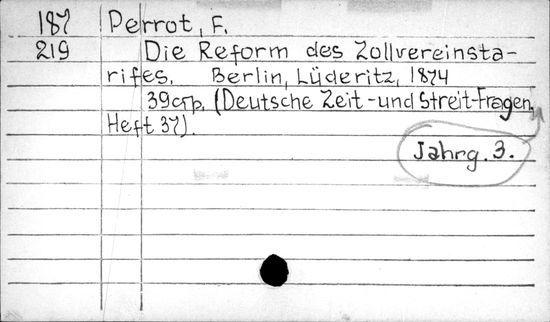 187 Perrot, F.
219 Die Reform des Zollvereinsta-
rifes. Berlin, Lüderitz, 1874
39 стр. (Deutsche Zeit-und Streit-Fragen,
Heft 37).
Jahrg. 3.